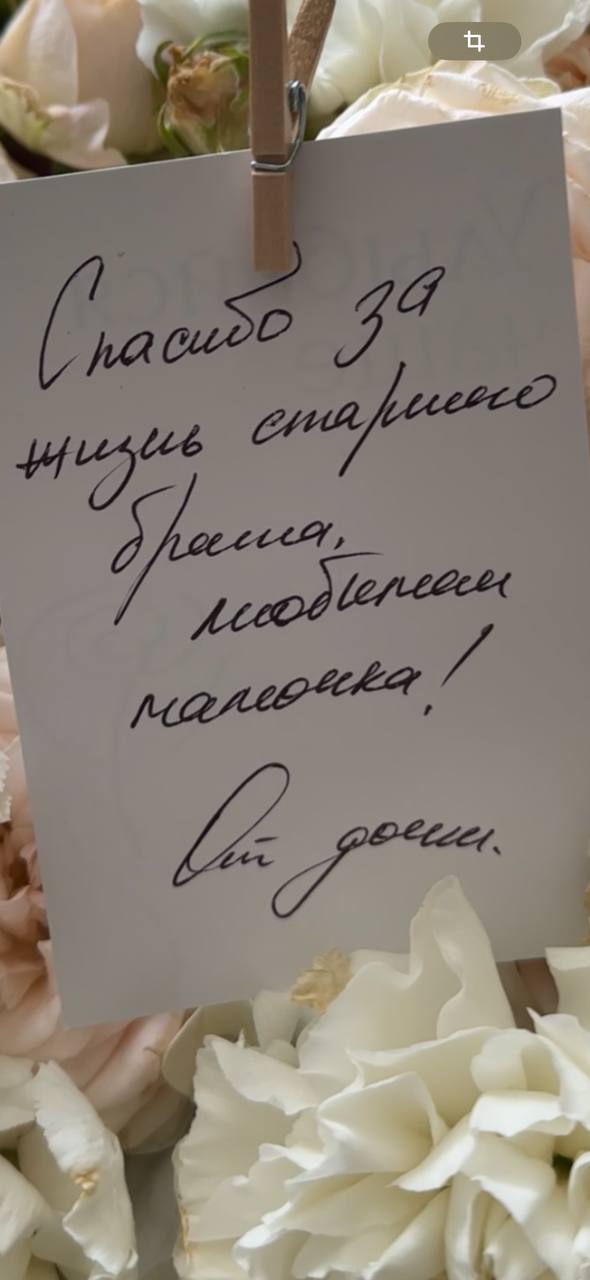 Спасибо за
жизнь старшего
брата,
любимая
мамочка!
От дочи.